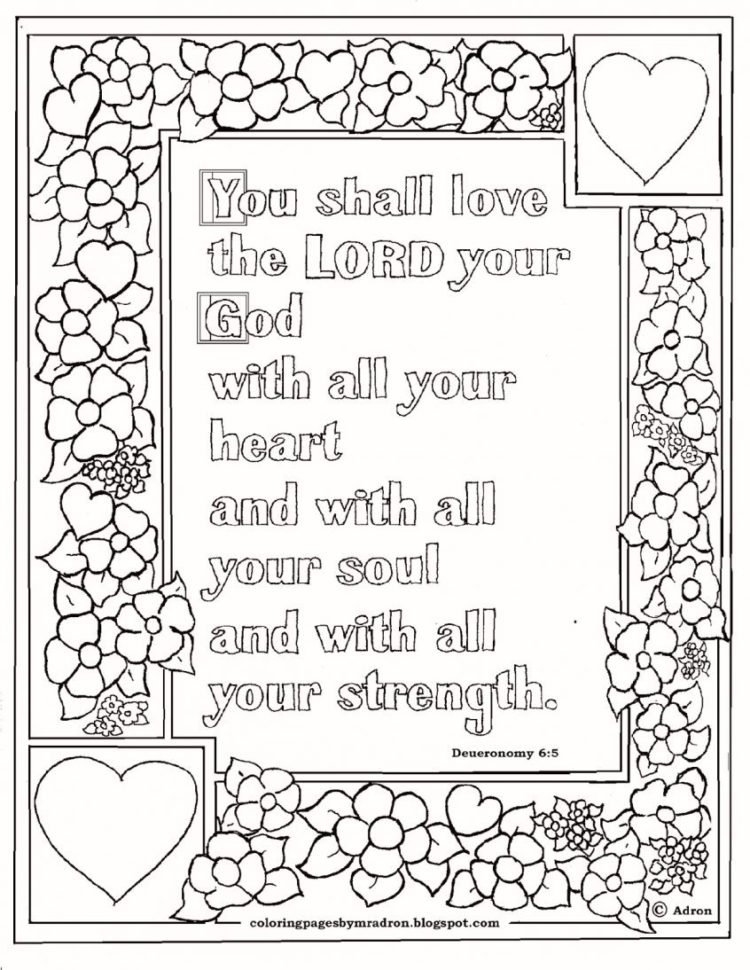 You shall love
the LORD your
God
with all your
heart
and with all
your soul
and with all
your strength.
Deueronomy 6:5
© Adron
coloringpagesbymradron.blogspot.com